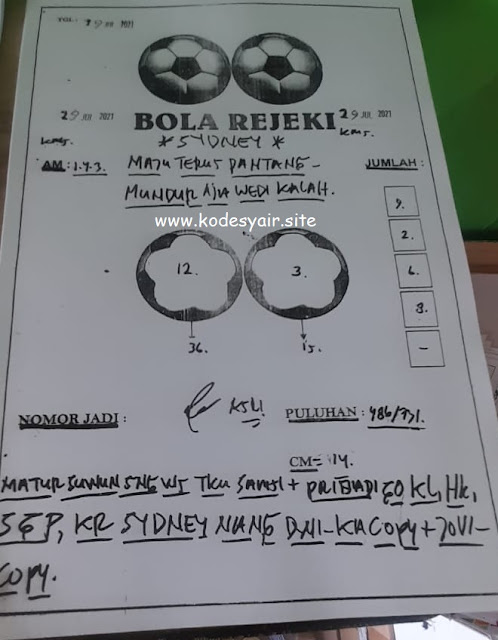 TGL: 29 JUL 2021
29 JUL 2021
BOLA REJEKI
29 JUL 2021
kms.
* SYDNEY *
kms.
AM: 1.4.3.
MAJU TERUS PANTANG-
JUMLAH :
MUNDUR AJA WEDI KALAH.
www.kodesyair.site
9.
2.
6.
8.
-
12.
3.
36.
15.
NOMOR JADI :
ASLI
PULUHAN : 486/771.
CM= 14.
MATUR SUWUN SNE WS TKU SANGI + PRIBADI EO KL, HK,
SGP, KR SYDNEY NANG DNI-KA COPY + JOVI-
COPY.